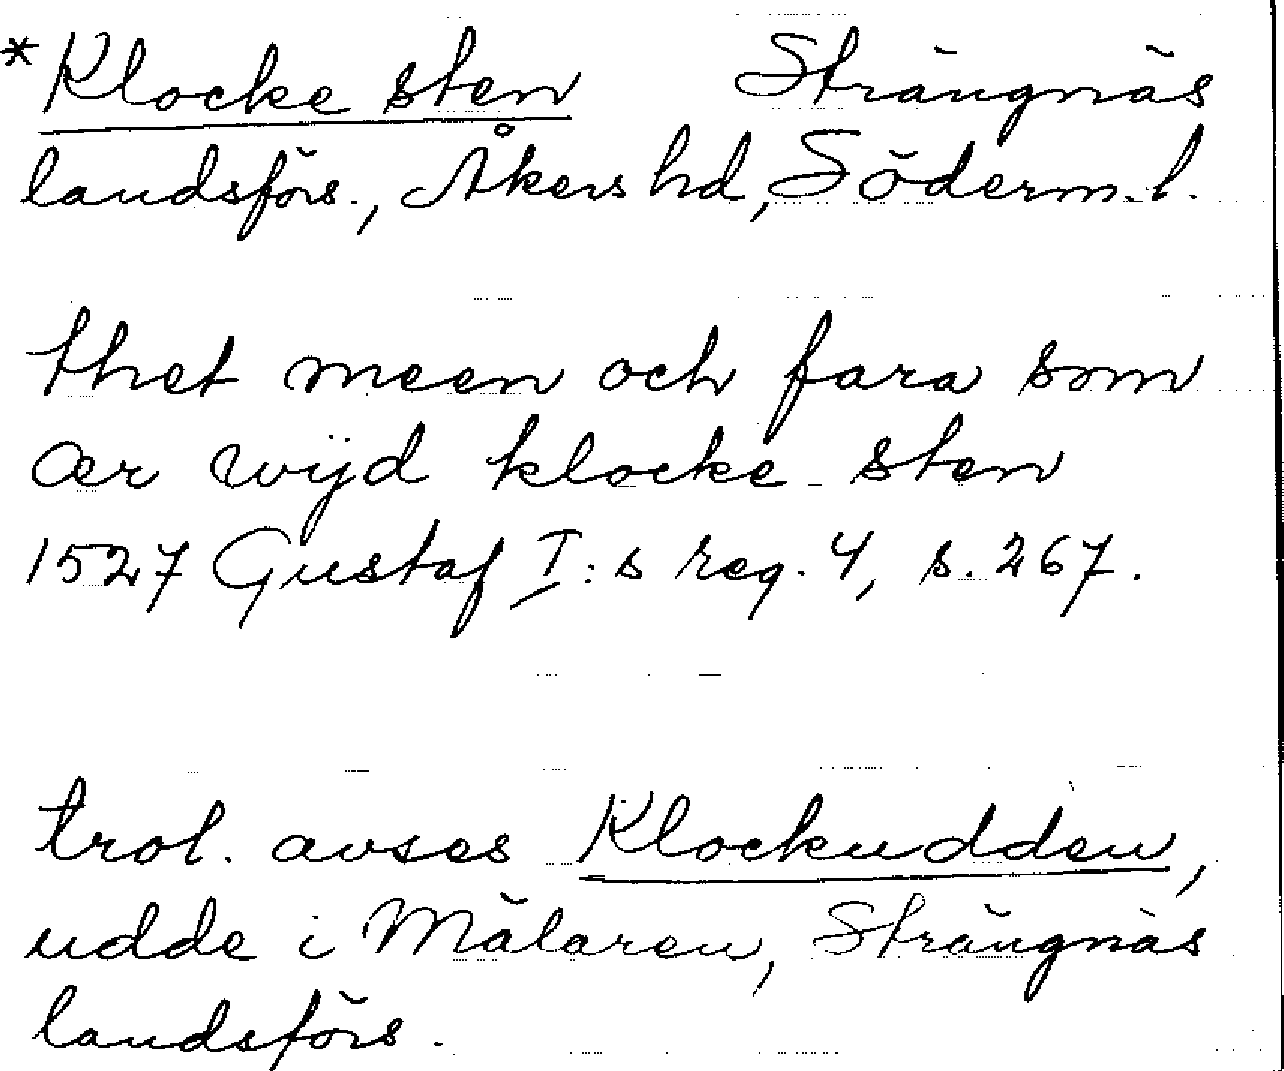 *Klocke sten Strängnäs
landsförs., Åkers hd, Söderm.l.
thet meen och fara som
ær wijd klocke sten
1527 Gustaf I:s reg. 4, s. 267.
trol. avses Klockudden,
udde i Mälaren, Strängnäs
landsförs.